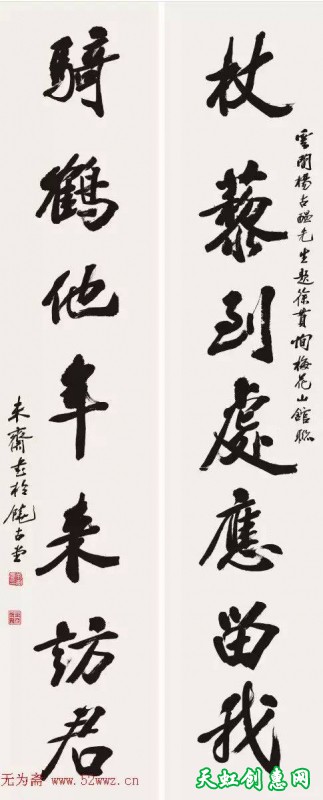 雲間楊古醖先生題徐貫恂梅花山館聯
杖藜到處應留我
騎鶴他年来訪君
未齋於饒古堂
无为斋 www.52wwz.cn
天虹创意网